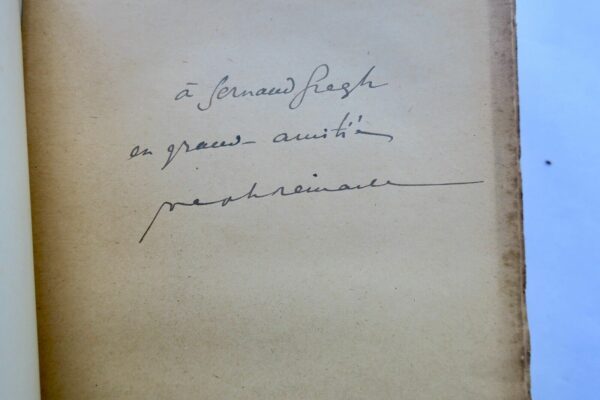 à Fernand Gregh
en grande amitié